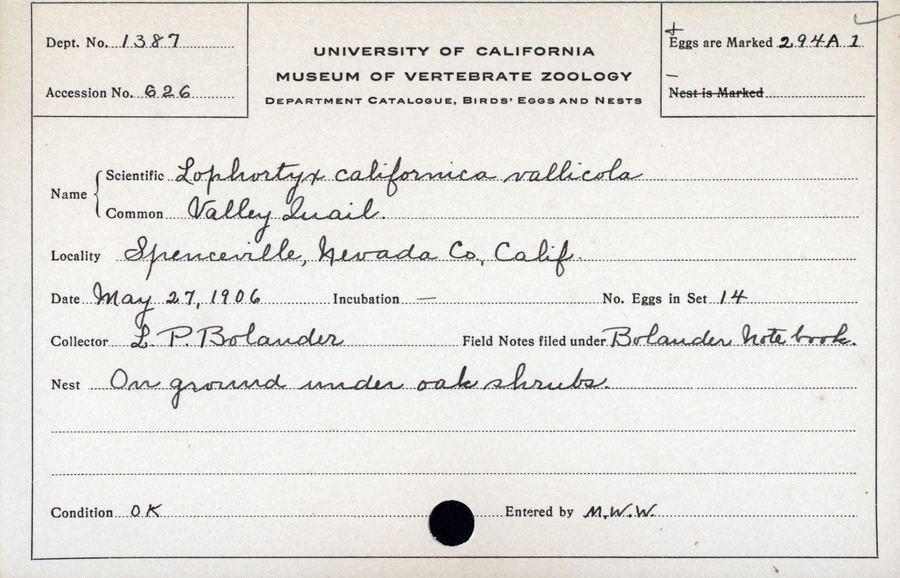 Dept. No. 1387
Accession No. 626
UNIVERSITY OF CALIFORNIA
MUSEUM OF VERTEBRATE ZOOLOGY
DEPARTMENT CATALOGUE, BIRDS' EGGS AND NESTS
+
Eggs are Marked 294A 1
—
Nest is Marked
Name { Scientific Lophortyx californica vallicola
Common Valley Quail.
Locality Spenceville, Nevada Co., Calif.
Date May 27, 1906 Incubation — No. Eggs in Set 14
Collector L. P. Bolander Field Notes filed under Bolander Note book.
Nest On ground under oak shrubs.
Condition OK Entered by M.W.W.